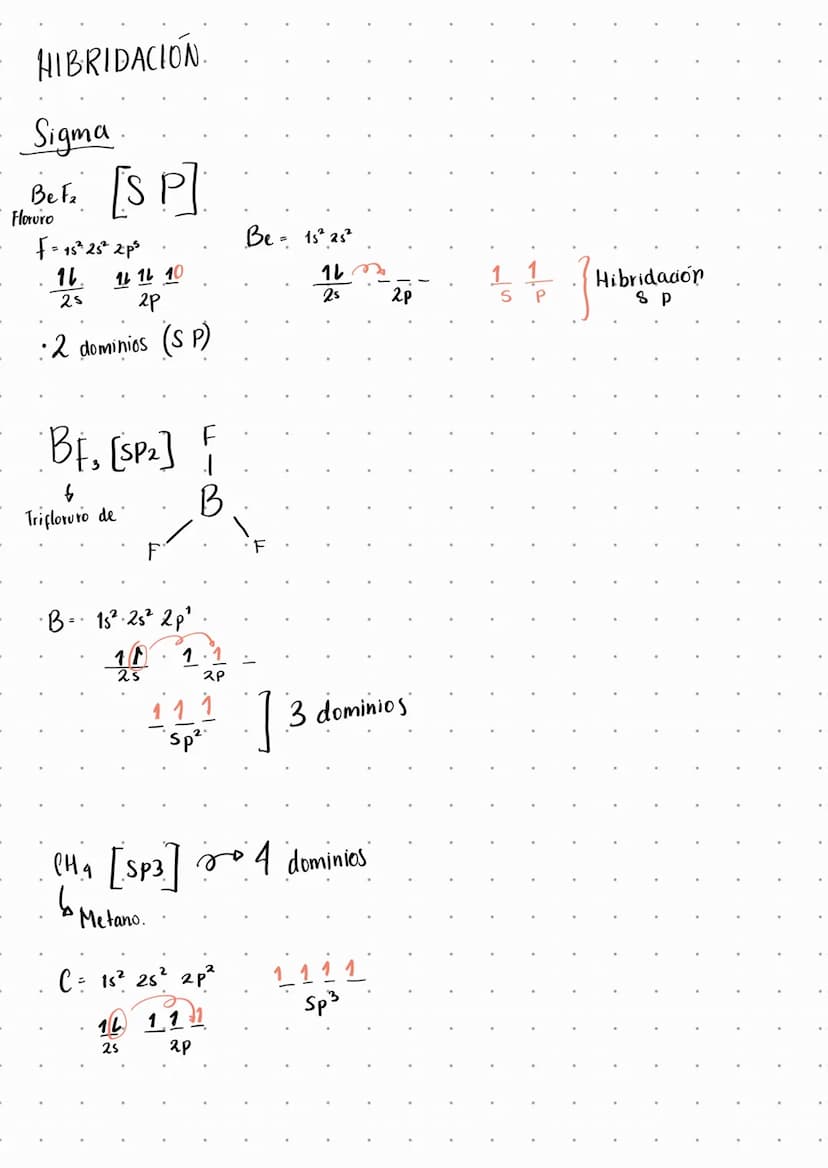 HIBRIDACIÓN.
Sigma
BeF₂ [S P]
Floruro
F = 1s² 2s² 2p⁵
1L 1L 1L 10
2s 2p
Be = 1s² 2s²
1L _ _ _
2s 2p
1 1 } Hibridación
S P S P
• 2 dominios (S P)
BF₃ [SP2]
F
B
F F
Trifloruro de
B = 1s² 2s² 2p¹
11 1 1 _
2s 2p
1 1 1 ] 3 dominios
Sp²
CH4 [Sp3] → 4 dominios
Metano.
C = 1s² 2s² 2p²
1L 1 1 1
2s 2p
1 1 1 1
Sp³